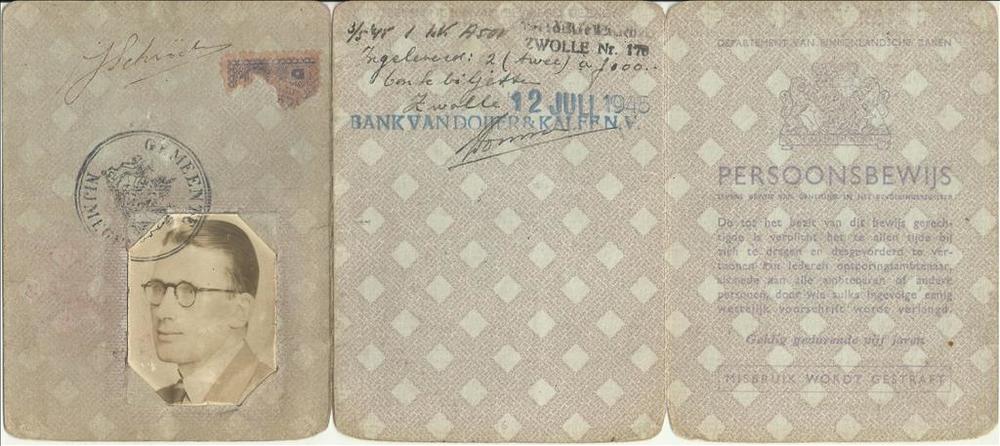 J Schut
GEMEENTE
NIJMEGEN
ZWOLLE Nr. 170
Ingeleverd: 2 (twee) a f 1000.-
bankbiljetten
Zwolle 12 JULI 1945
BANK VAN DOIJER & KALFF N.V.
6
DEPARTEMENT VAN BINNENLANDSCHE ZAKEN
PERSOONSBEWIJS
TEVENS BEWIJS VAN OPNEMING IN HET BEVOLKINGSREGISTER
De tot het bezit van dit bewijs gerech-
tigde is verplicht het te allen tijde bij
zich te dragen en desgevorderd te ver-
toonen aan iederen opsporingsambtenaar,
alsmede aan alle ambtenaren of andere
personen, door wie zulks ingevolge eenig
wettelijk voorschrift wordt verlangd.
Geldig gedurende vijf jaren
MISBRUIK WORDT GESTRAFT